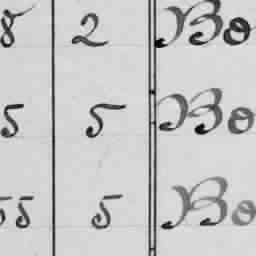 8 2 Bo
5 5 Bo
55 5 Bo